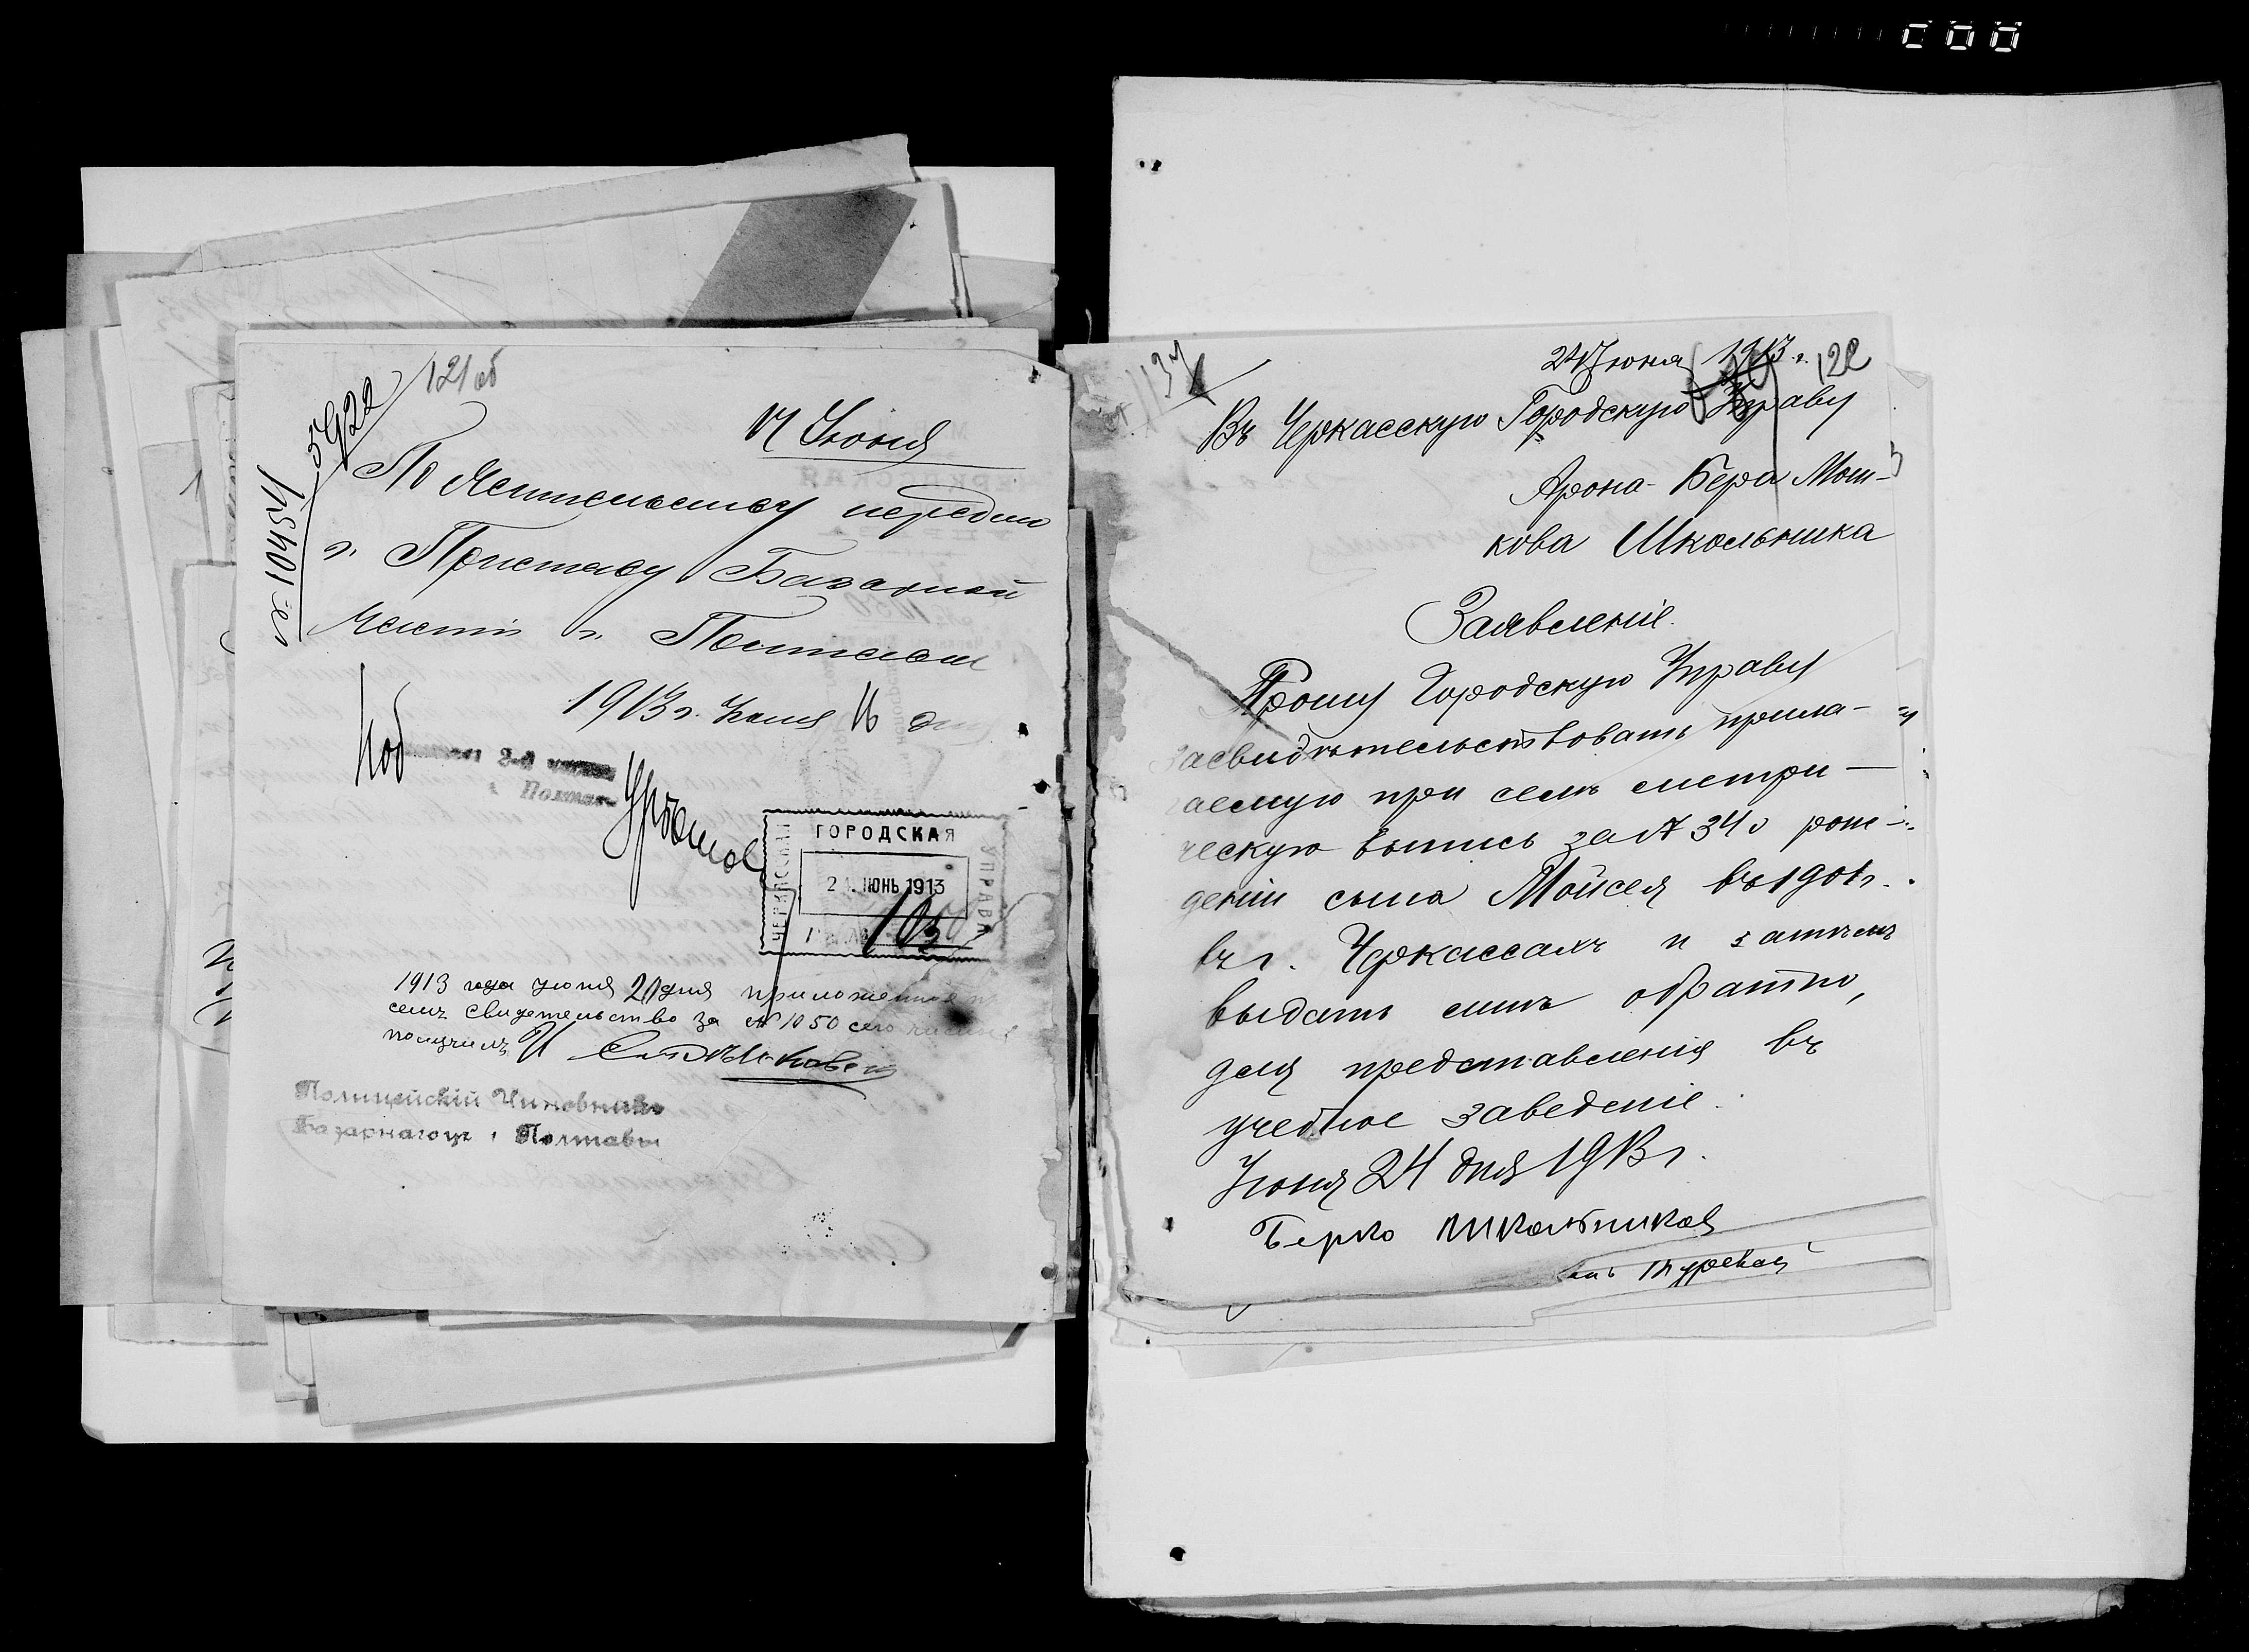 121 об
5922
№ 10454
17 Июня
По жительству передаю
г. Приставу Базарной
части г. Полтавы
1913 г. Июня 16 дня
2-й части
г. Полтав
ЧЕРКАССКАЯ
ГОРОДСКАЯ
УПРАВА
ІЮНЬ 1913
1913 года июня 21 дня приложенное при
семъ свидетельство за № 1050 сего числа
получилъ И
Полицейскій Чиновникъ
Базарнаго г. Полтавы
24 Іюня 1913 г. 122
Въ Черкасскую Городскую Управу
Арона-Бера Мош-
кова Школьника
Заявленіе.
Прошу Городскую Управу
засвидѣтельствовать прила-
аемую при семъ метри-
ческую выпись за № 34 о рож-
деніи сына Мойсея въ 1901 г.
въ г. Черкассахъ и затѣмъ
выдать мнѣ обратно,
для представленія въ
учебное заведеніе.
Іюня 24 дня 1913 г.
Берко Школьников